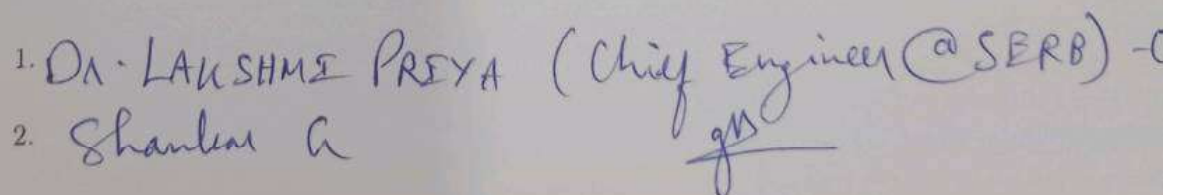 1. Dr. LAKSHMI PRIYA (Chief Engineer @ SERB) -
2. Shankar G